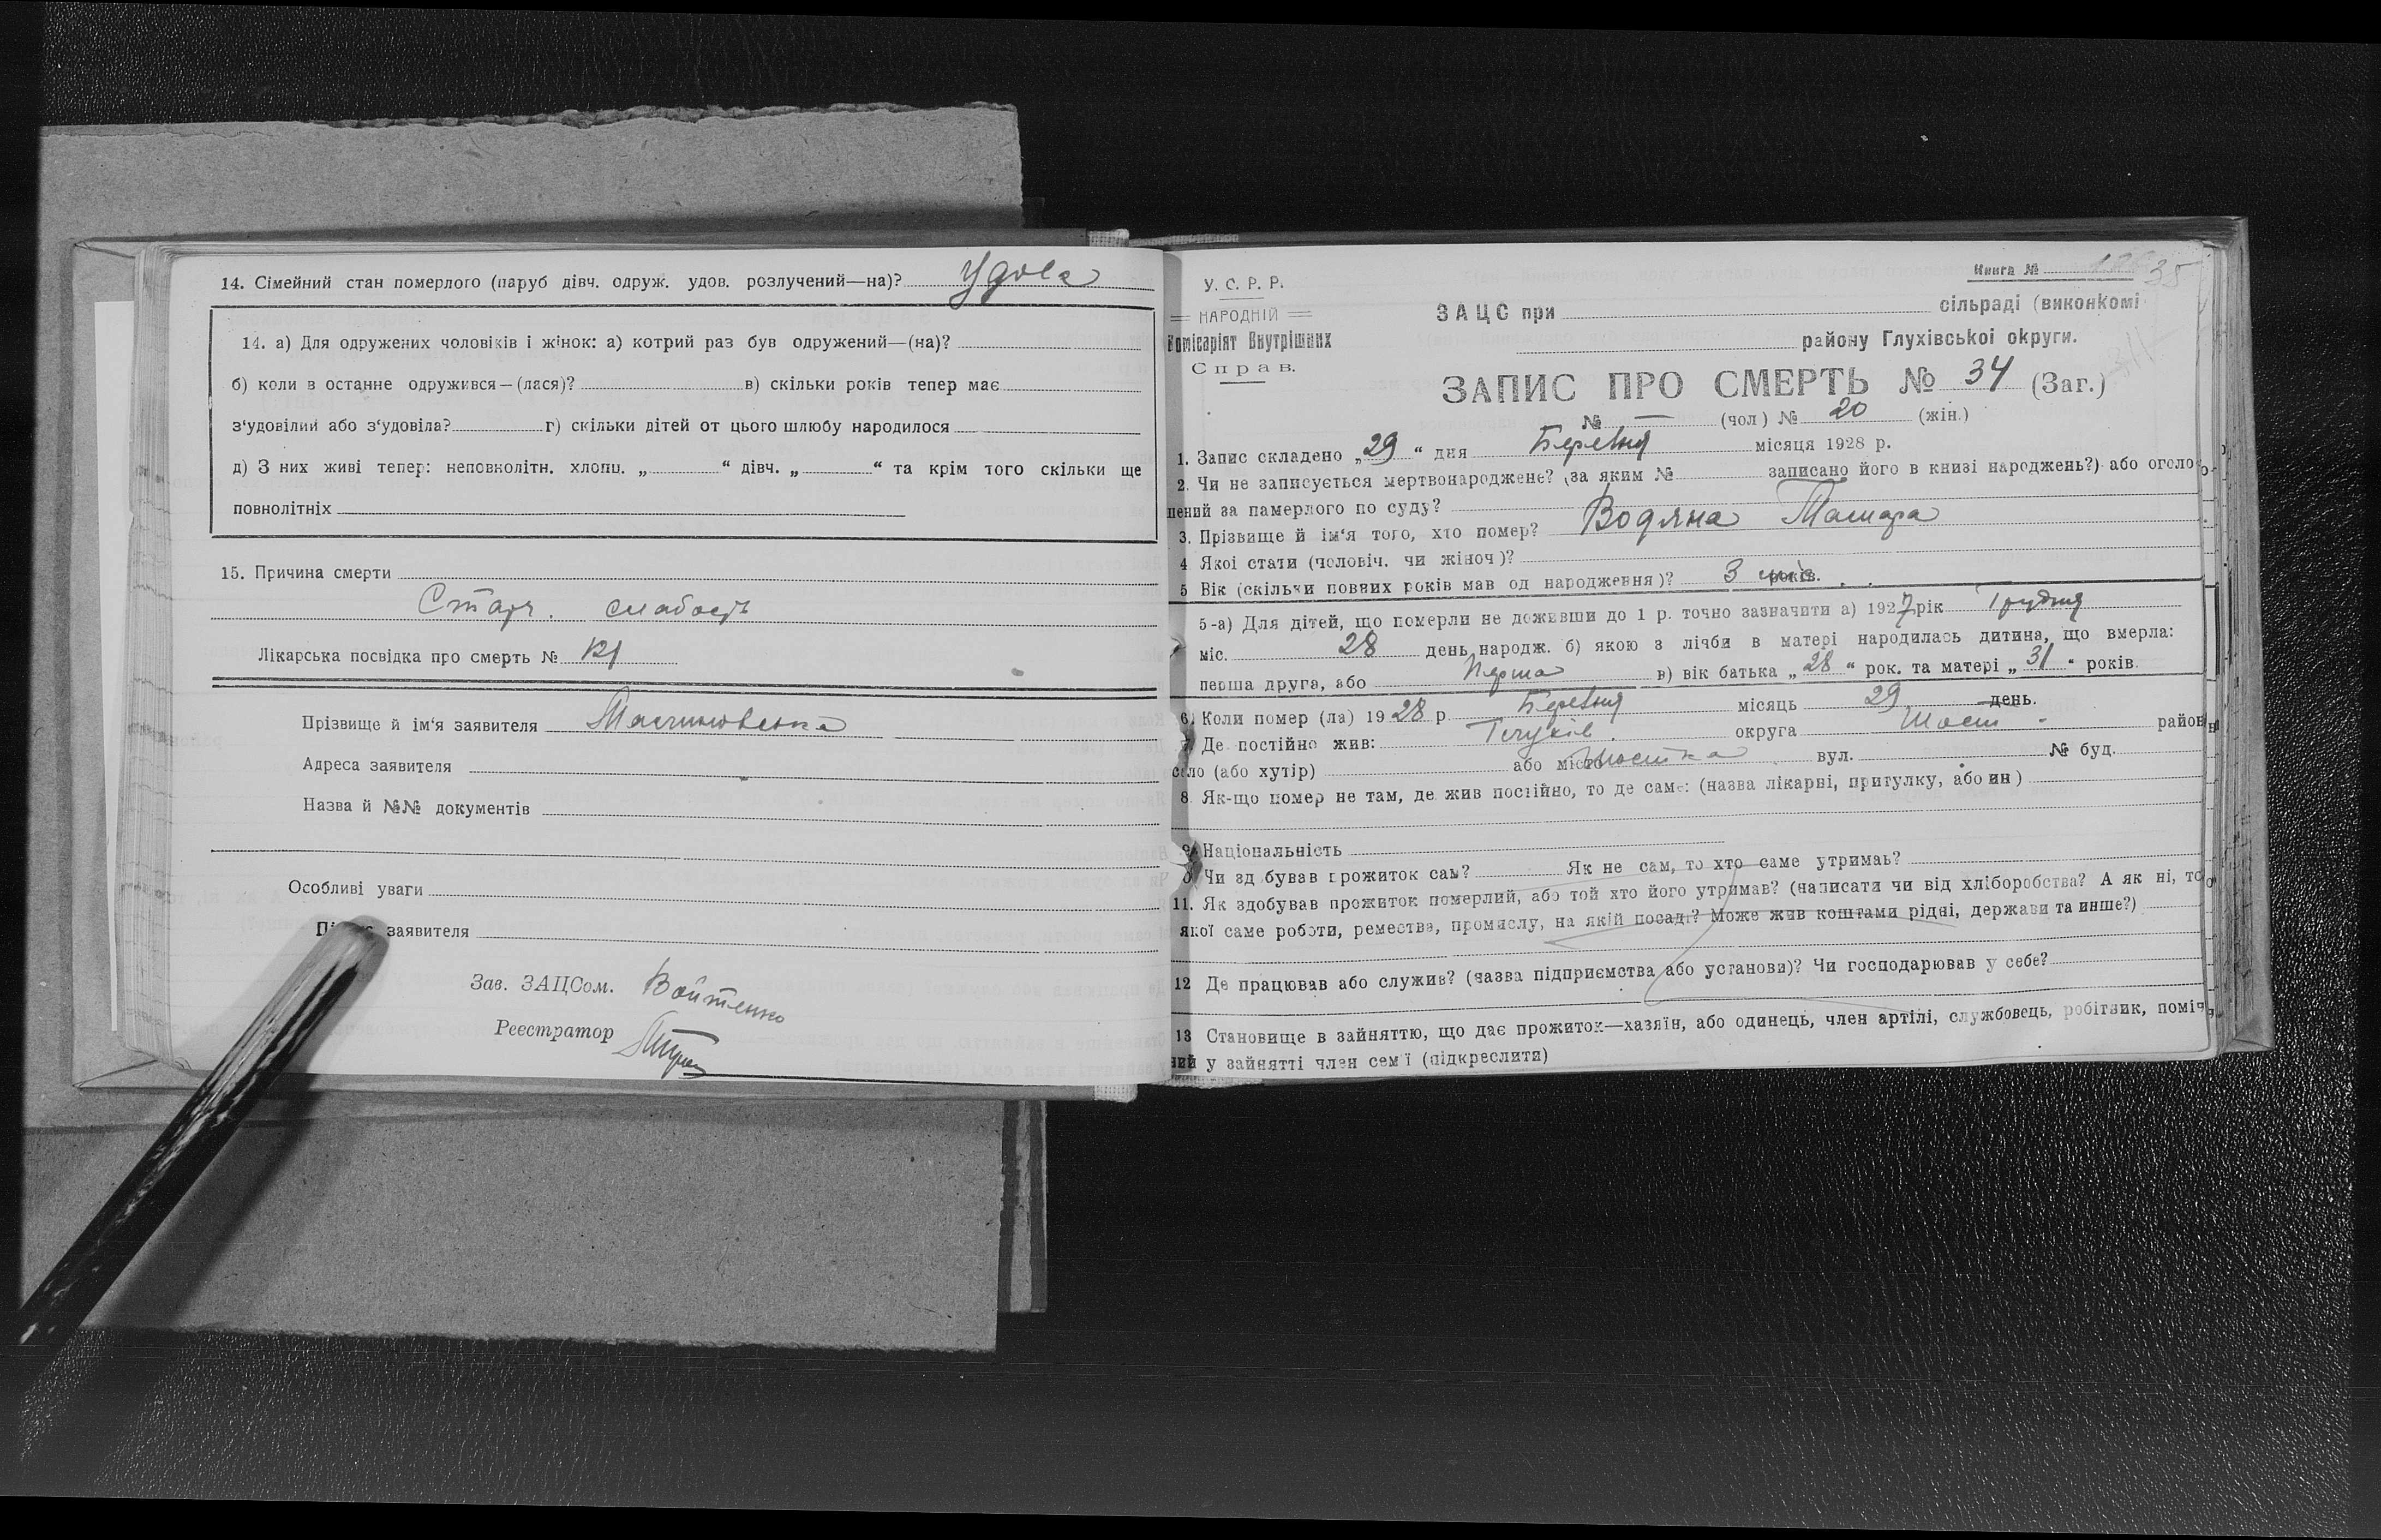 14. Сімейний стан померлого (паруб дівч. одруж. удов. розлучений—на)? Удова
14. а) Для одружених чоловіків і жінок: а) котрий раз був одружений—(на)?
б) коли в останнє одружився—(лася)? в) скільки років тепер має
з‘удовілий або з‘удовіла? г) скільки дітей от цього шлюбу народилося
д) З них живі тепер: неповнолітн. хлопц. „ “ дівч. „ “ та крім того скільки ще
повнолітніх
15. Причина смерти
Старч. слабость
Лікарська посвідка про смерть № 121
Прізвище й ім‘я заявителя
Адреса заявителя
Назва й №№ документів
Особливі уваги
заявителя
Зав. ЗАЦСом. Войтенко
Реєстратор
Книга № 35
У. С. Р. Р.
НАРОДНІЙ
Комісаріят Внутрішних
Справ.
ЗАЦС при сільраді (виконкомі
району Глухівської округи.
ЗАПИС ПРО СМЕРТЬ № 34 (Заг.)
№ — (чол) № 20 (жін.)
1. Запис складено „29“ дня Березня місяця 1928 р.
2. Чи не записується мертвонароджене? (за яким № записано його в книзі народжень?) або оголо
шений за памерлого по суду?
3. Прізвище й ім‘я того, хто помер? Водяна Тамара
4 Якої стати (чоловіч. чи жіноч)?
5 Вік (скільки повних років мав од народження)? 3 міс.
5-а) Для дітей, що померли не доживши до 1 р. точно зазначити а) 1927 рік Грудня
міс. 28 день народж. б) якою з лічби в матері народилась дитина, що вмерла:
перша друга, або Перша в) вік батька „28“ рок. та матері „31“ років.
6. Коли помер (ла) 1928 р Березня місяць 29 день.
7. Де постійно жив: Глухів. округа Шост. район
село (або хутір) або місто Шостка вул. № буд.
8. Як-що помер не там, де жив постійно, то де саме: (назва лікарні, притулку, або ин)
9. Національність
Чи здобував прожиток сам? Як не сам, то хто саме утримав?
11. Як здобував прожиток померлий, або той хто його утримав? (написати чи від хліборобства? А як ні, то
якої саме роботи, ремества, промислу, на якій посаді? Може жив коштами рідні, держави та инше?)
12 Де працював або служив? (назва підприємства або установи)? Чи господарював у себе?
13 Становище в зайняттю, що дає прожиток—хазяїн, або одинець, член артілі, службовець, робітник, поміч
ний у зайнятті член сем‘ї (підкреслити)